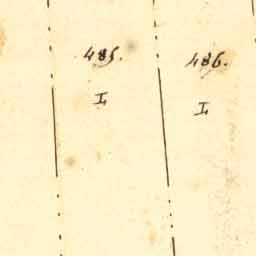 485.
486.
I
I